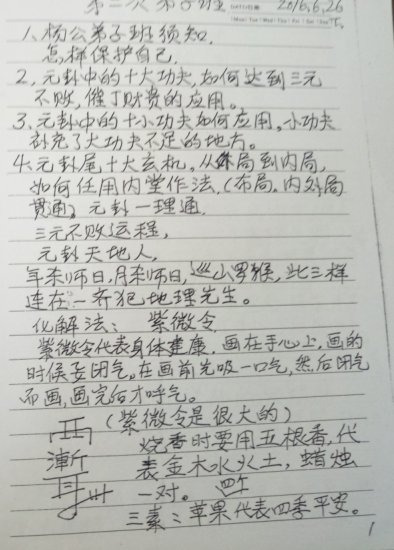 第二次弟子班 DATE 2016,6,26
Mon Tue Wed Thu Fri Sat Sun 下
1、杨公弟子班须知,
怎样保护自己.
2、元卦中的十大功夫,如何达到三元
不败,催丁财贵的应用。
3、元卦中的十小功夫如何应用。小功夫
补充了大功夫不足的地方。
4、元卦尾十大玄机。从外局到内局,
如何任用内堂作法,(布局,内外局
贯通)元卦一理通.
三元不败运程,
元卦天地人,
年杀师日,月杀师日,巡山罗猴,此三样
连在一齐犯地理先生。
化解法: 紫微令
紫微令代表身体健康,画在手心上,画的
时候要闭气。在画前先吸一口气,然后闭气
而画,画完后才呼气。
(紫微令是很大的)
烧香时要用五根香,代
渐
表金木水火土,蜡烛
一对。四个
三素:苹果代表四季平安。
1